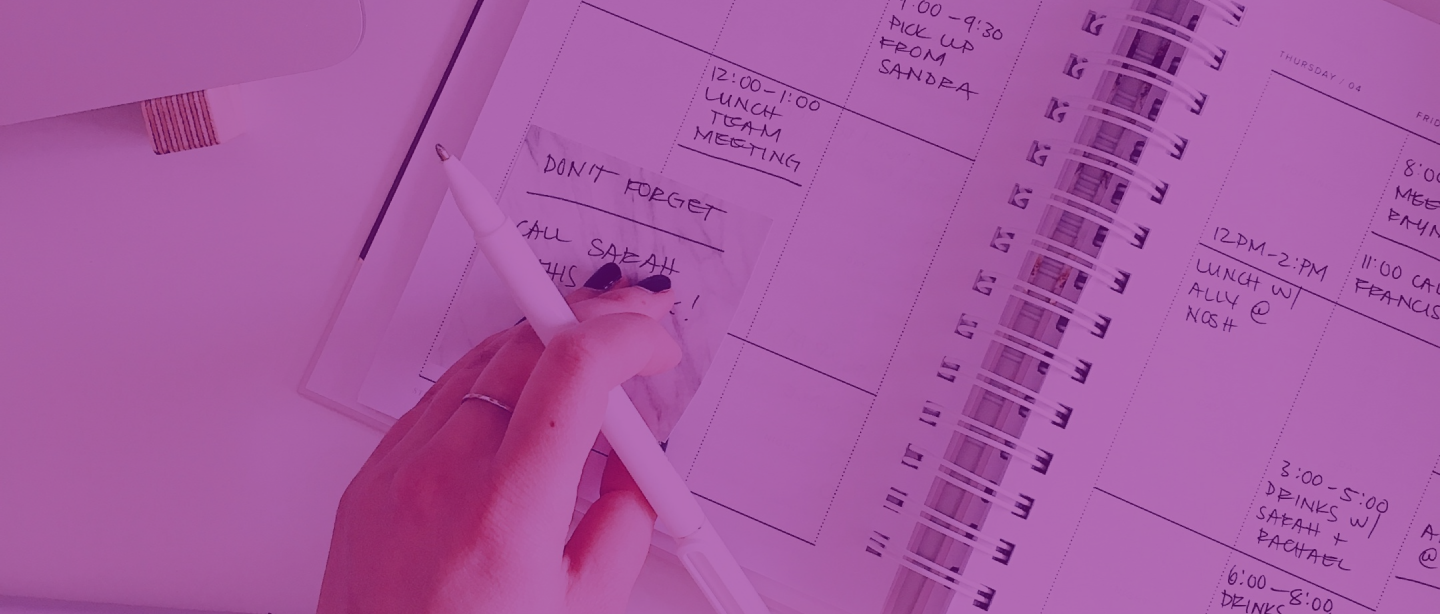 9:00-9:30
PICK UP
FROM
SANDRA
12:00-1:00
LUNCH
TEAM
MEETING
DON'T FORGET
CALL SARAH
THURSDAY / 04
12PM-2:PM
LUNCH W/
ALLY @
NOSH
3:00-5:00
DRINKS W/
SARAH +
RACHAEL
6:00-8:00
DRINKS
8:00
11:00